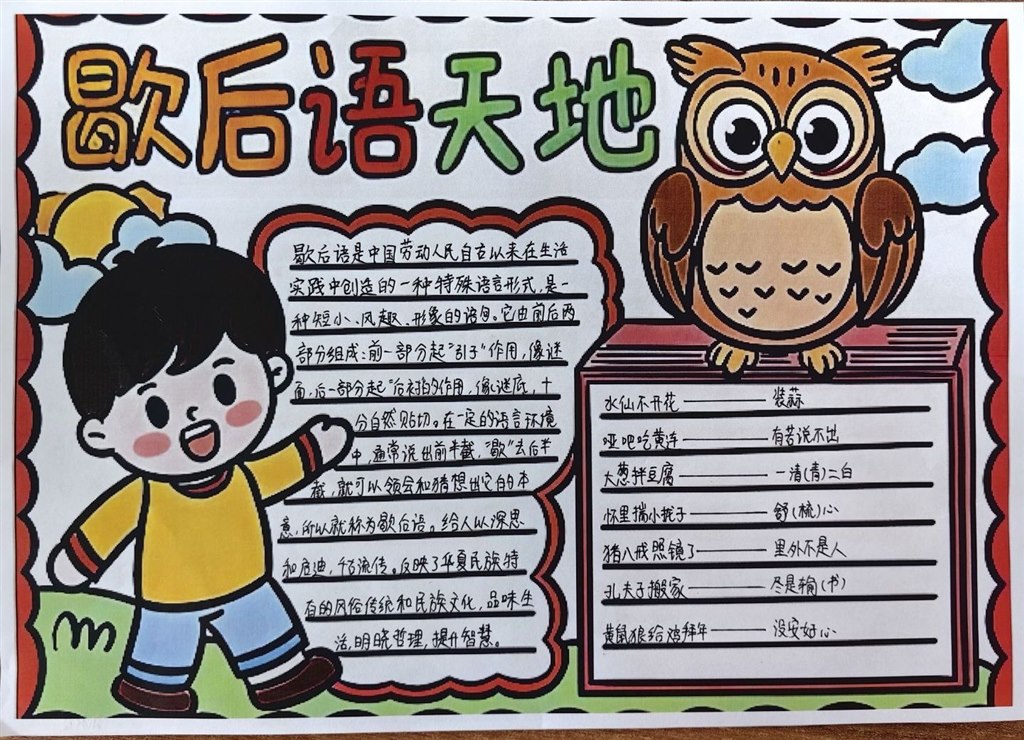 歇后语天地
歇后语是中国劳动人民自古以来在生活
实践中创造的一种特殊语言形式,是一
种短小、风趣、形象的语句。它由前后两
部分组成:前一部分起"引子"作用,像谜
面,后一部分起"后衬"的作用,像谜底,十
分自然贴切。在一定的语言环境
中,通常说出前半截,"歇"去后半
截,就可以领会和猜想出它的本
意,所以就称为歇后语。给人以深思
和启迪,千古流传。反映了华夏民族特
有的风俗传统和民族文化,品味生
活,明晓哲理,提升智慧。
水仙不开花——装蒜
哑吧吃黄连——有苦说不出
大葱拌豆腐——一清(青)二白
怀里揣小梳子——舒(梳)心
猪八戒照镜子——里外不是人
孔夫子搬家——尽是输(书)
黄鼠狼给鸡拜年——没安好心